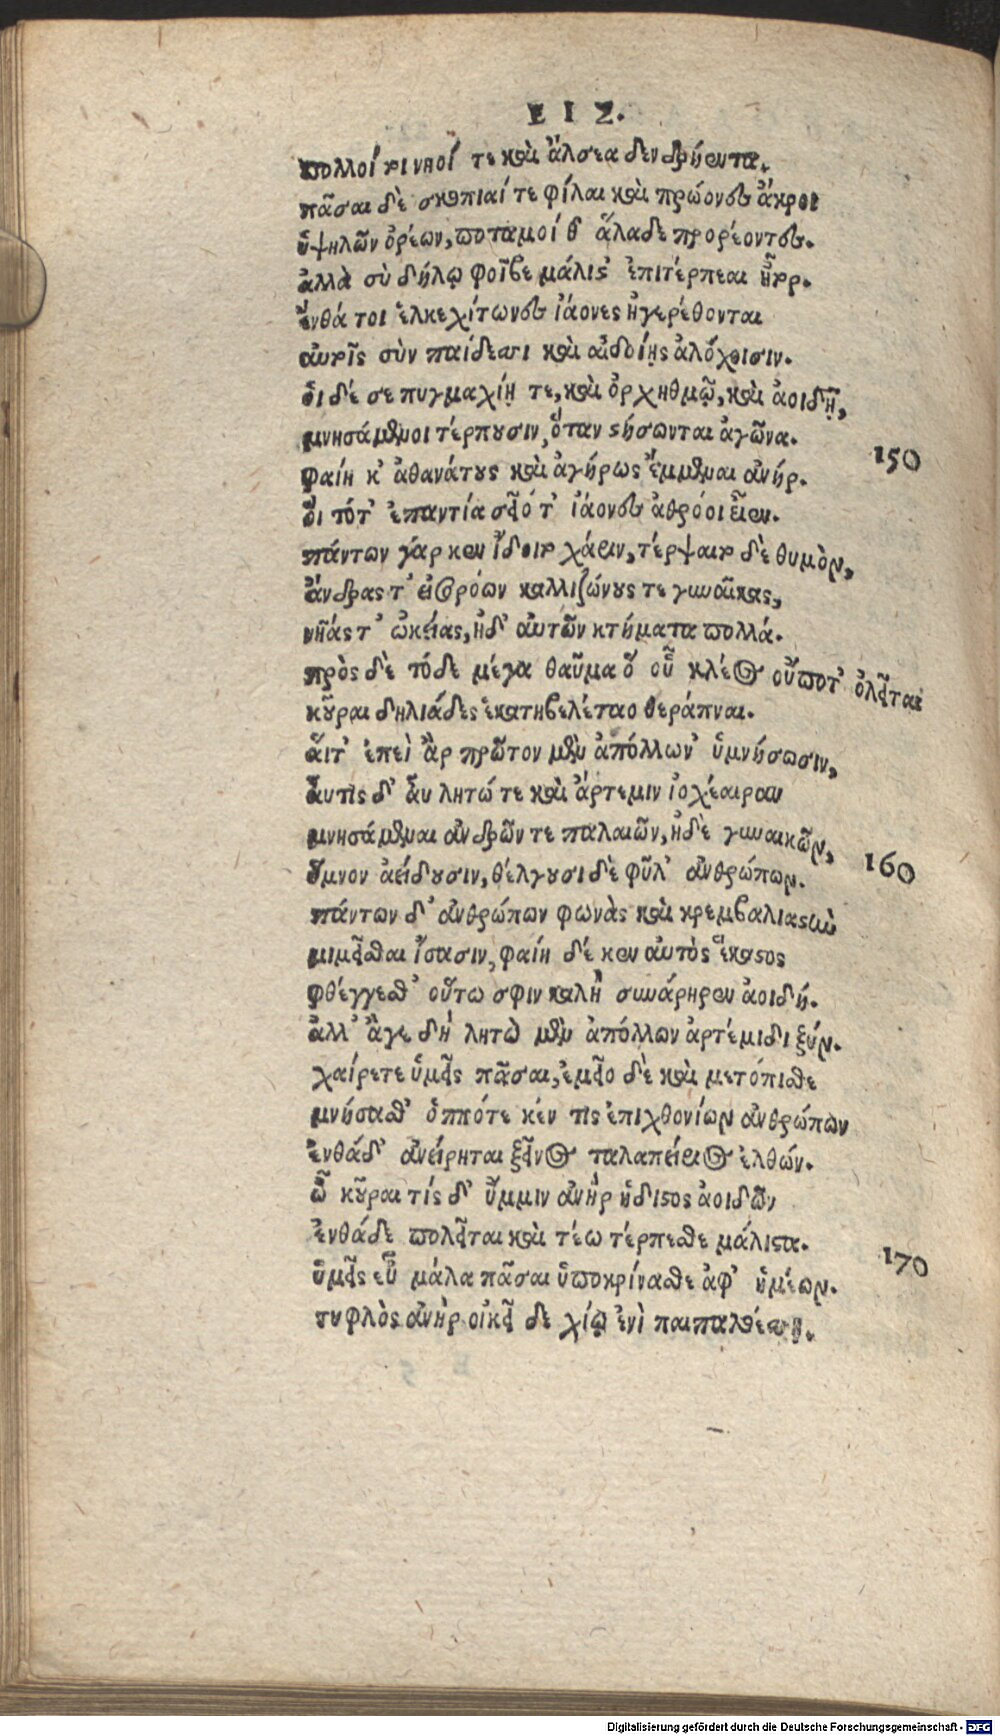 ΕΙΣ.
πολλοί τινηοί τε καὶ ἄλσεα δενδρήεντα,
πᾶσαι δὲ σκοπιαί τε φίλαι καὶ πρώονες ἄκροι
ὑψηλῶν ὀρέων, ποταμοί θ' ἅλαδε προρέοντες.
ἀλλὰ σὺ δήλῳ φοῖβε μάλιστ' ἐπιτέρπεαι ἦτορ.
ἔνθά τοι ἑλκεχίτωνες ἰάονες ἠγερέθονται
αὐτοῖς σὺν παίδεσσι καὶ αἰδοίῃς ἀλόχοισιν.
ὁι δέ σε πυγμαχίῃ τε, καὶ ὀρχηθμῷ, καὶ ἀοιδῇ,
μνησάμενοι τέρπουσιν, ὅταν στήσωνται ἀγῶνα.
150
φαίη κ' ἀθανάτους καὶ ἀγήρως ἔμμεναι ἀνήρ.
ὃι τότ' ἐπαντία σεῖό τ' ἰάονες ἀθρόοι εἶεν.
πάντων γάρ κεν ἴδοιτο χάριν, τέρψαιτο δὲ θυμὸν,
ἄνδρας τ' εἰσορόων καλλιζώνους τε γυναῖκας,
νῆάς τ' ὠκείας, ἠδ' αὐτῶν κτήματα πολλά.
πρὸς δὲ τόδε μέγα θαῦμα ὅ οὗ κλέος οὔποτ' ὀλεῖται
κοῦραι δηλιάδες ἑκατηβελέταο θεράπναι.
ἅιτ' ἐπεὶ ἂρ πρῶτον μὲν ἀπόλλων' ὑμνήσωσιν,
ἆυτις δ' ἆυ λητώ τε καὶ ἄρτεμιν ἰοχέαιραν
μνησάμεναι ἀνδρῶν τε παλαιῶν, ἠδὲ γυναικῶν,
160
ὕμνον ἀείδουσιν, θέλγουσι δὲ φῦλ' ἀνθρώπων.
πάντων δ' ἀνθρώπων φωνὰς καὶ κρεμβαλιαστὺν
μιμεῖσθαι ἴσασιν, φαίη δέ κεν αὐτὸς ἕκαστος
φθέγγεσθ' οὕτω σφιν καλὴ συνάρηρεν ἀοιδή.
ἀλλ' ἄγε δὴ λητὼ μὲν ἀπόλλων ἀρτέμιδι ξύν.
χαίρετε ὑμεῖς πᾶσαι, ἐμεῖο δὲ καὶ μετόπισθε
μνήσασθ' ὁππότε κέν τις ἐπιχθονίων ἀνθρώπων
ἐνθάδ' ἀνείρηται ξεῖνος ταλαπείριος ἐλθών.
ὦ κοῦραι τίς δ' ὔμμιν ἀνὴρ ἥδιστος ἀοιδῶν
ἐνθάδε πολεῖται καὶ τέω τέρπεσθε μάλιστα.
170
ὑμεῖς εὖ μάλα πᾶσαι ὑποκρίνασθε ἀφ' ὑμέων.
τυφλὸς ἀνὴρ οἰκεῖ δε χίῳ ἐνὶ παιπαλοέσσῃ.
Digitalisierung gefördert durch die Deutsche Forschungsgemeinschaft - DFG